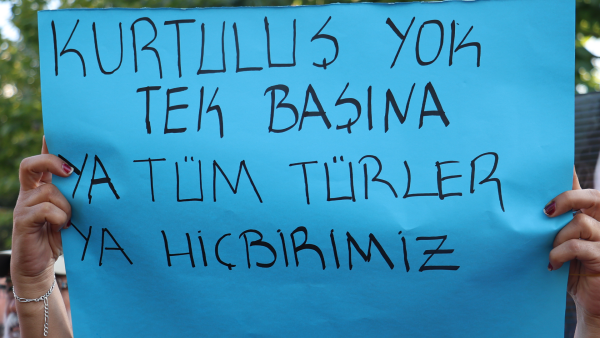 KURTULUŞ YOK
TEK BAŞINA
YA TÜM TÜRLER
YA HİÇBİRİMİZ